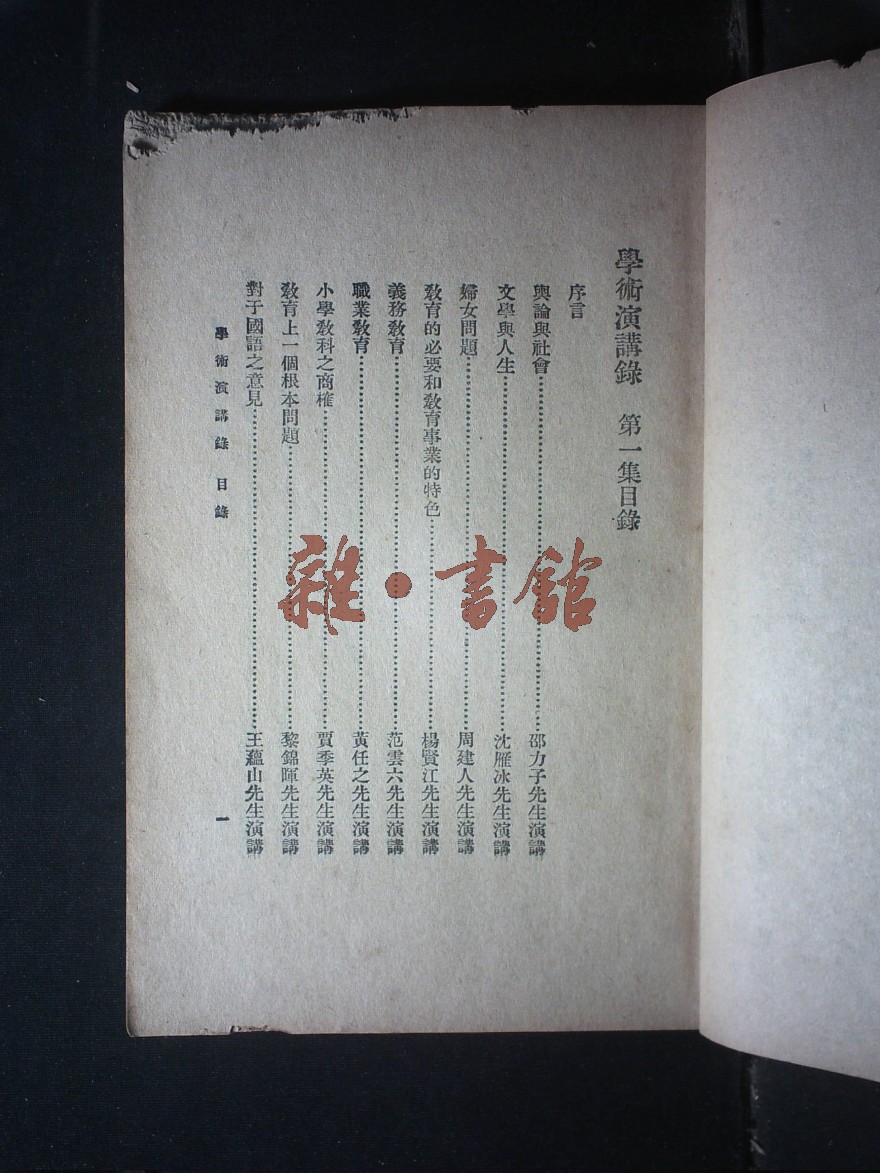 學術演講錄　第一集目錄
序言
輿論與社會…………邵力子先生演講
文學與人生…………沈雁冰先生演講
婦女問題…………周建人先生演講
教育的必要和教育事業的特色…………楊賢江先生演講
義務教育…………范雲六先生演講
職業教育…………黃任之先生演講
小學教科之商榷…………賈季英先生演講
教育上一個根本問題…………黎錦暉先生演講
對于國語之意見…………王蘊山先生演講
學術演講錄　目錄　一
雜·書館